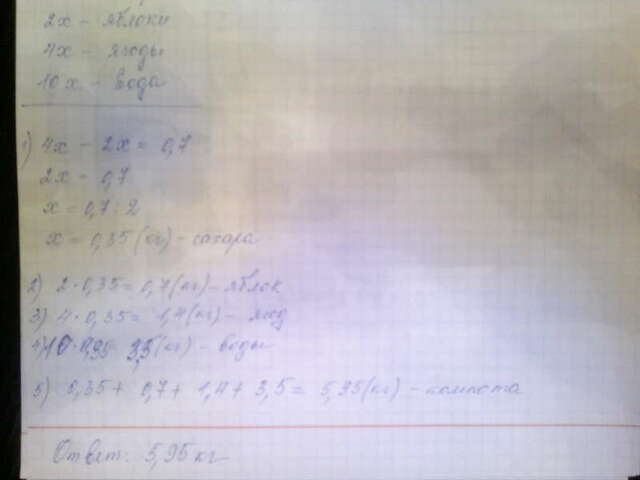 2х – яблоки
4х – ягоды
10х – вода
1) 4х – 2х = 0,7
2х = 0,7
х = 0,7 : 2
х = 0,35 (кг) – сахара
2) 2 · 0,35 = 0,7 (кг) – яблок
3) 4 · 0,35 = 1,4 (кг) – ягод
4) 10 · 0,35 = 3,5 (кг) – воды
5) 0,35 + 0,7 + 1,4 + 3,5 = 5,95 (кг) – компота
Ответ: 5,95 кг